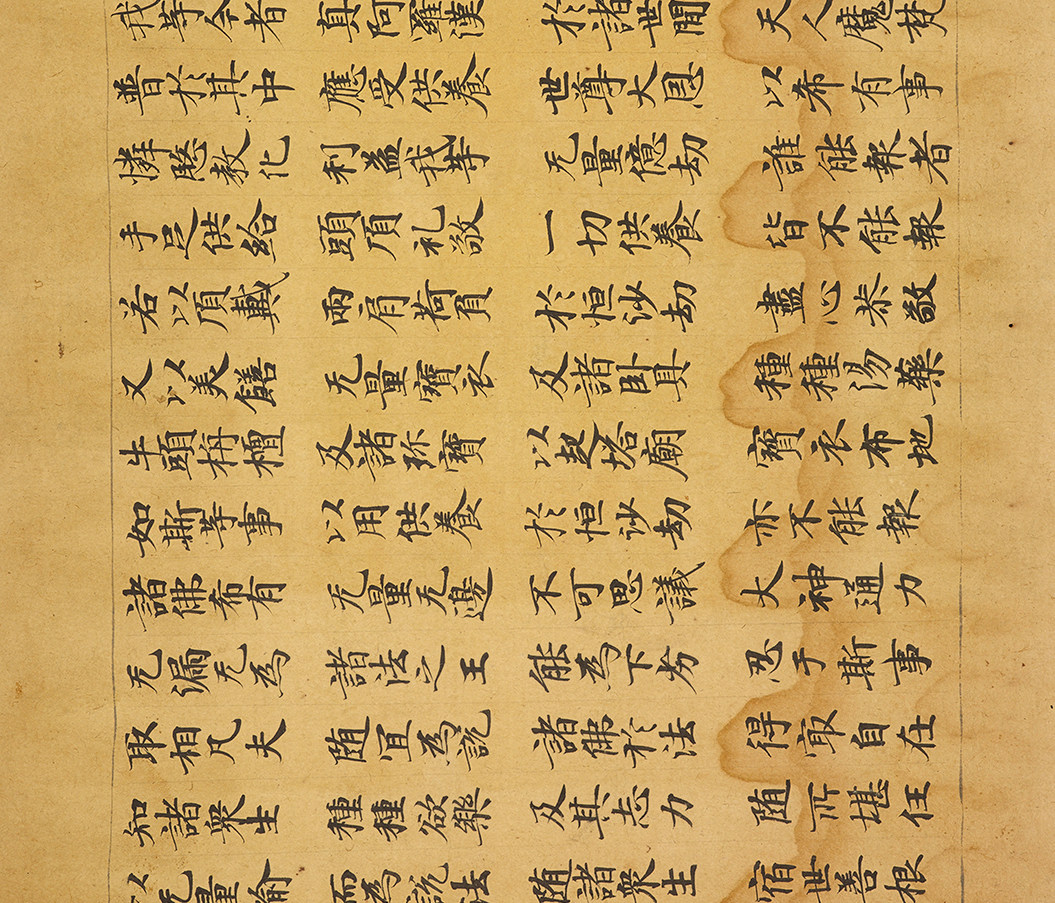 我等今者 真阿羅漢 於諸世間 天人魔梵
普於其中 應受供養 世尊大恩 以希有事
憐愍教化 利益我等 无量億劫 誰能報者
手足供給 頭頂礼敬 一切供養 皆不能報
若以頂戴 兩肩荷負 於恒沙劫 盡心恭敬
又以美饍 无量寶衣 及諸卧具 種種湯藥
牛頭栴檀 及諸珎寶 以起塔廟 寶衣布地
如斯等事 以用供養 於恒沙劫 亦不能報
諸佛希有 无量无邊 不可思議 大神通力
无漏无為 諸法之王 能為下劣 忍于斯事
取相凡夫 随宜為説 諸佛於法 得冣自在
知諸衆生 種種欲樂 及其志力 随所堪任
以无量喻 而為説法 随諸衆生 宿世善根